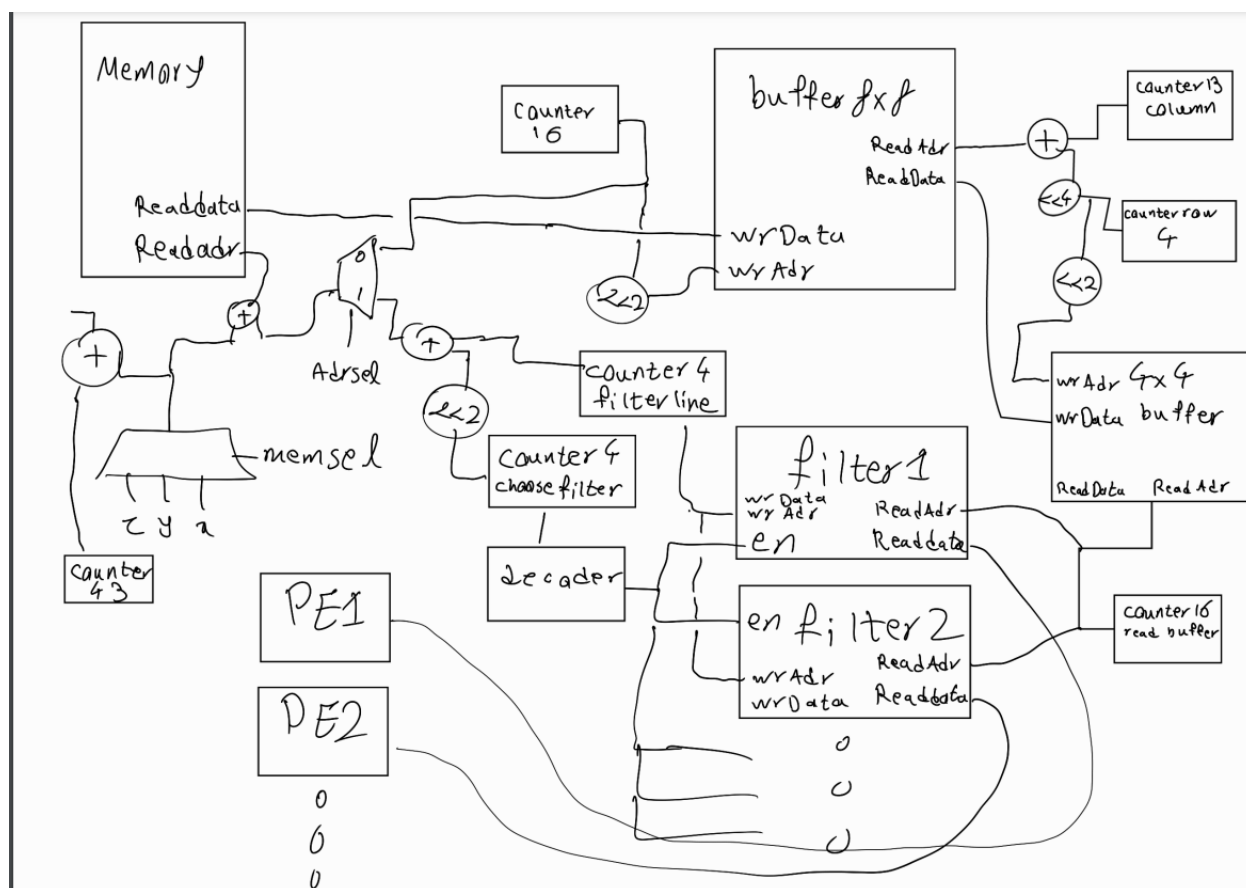 Memory
Readdata
Readadr
counter
16
buffer fxf
Read Adr
ReadData
wrData
wrAdr
counter 13
column
counter row
4
+
<<4
<<2
<<2
0
1
+
+
+
Adrsel
<<2
memsel
z y x
counter
43
counter 4
filter line
counter 4
choose filter
decoder
wrAdr
wrData
4x4
buffer
ReadData
Read Adr
filter1
wr Data
wr Adr
en
ReadAdr
Readdata
en
filter2
wrAdr
wrData
ReadAdr
Readdata
counter16
read buffer
PE1
PE2